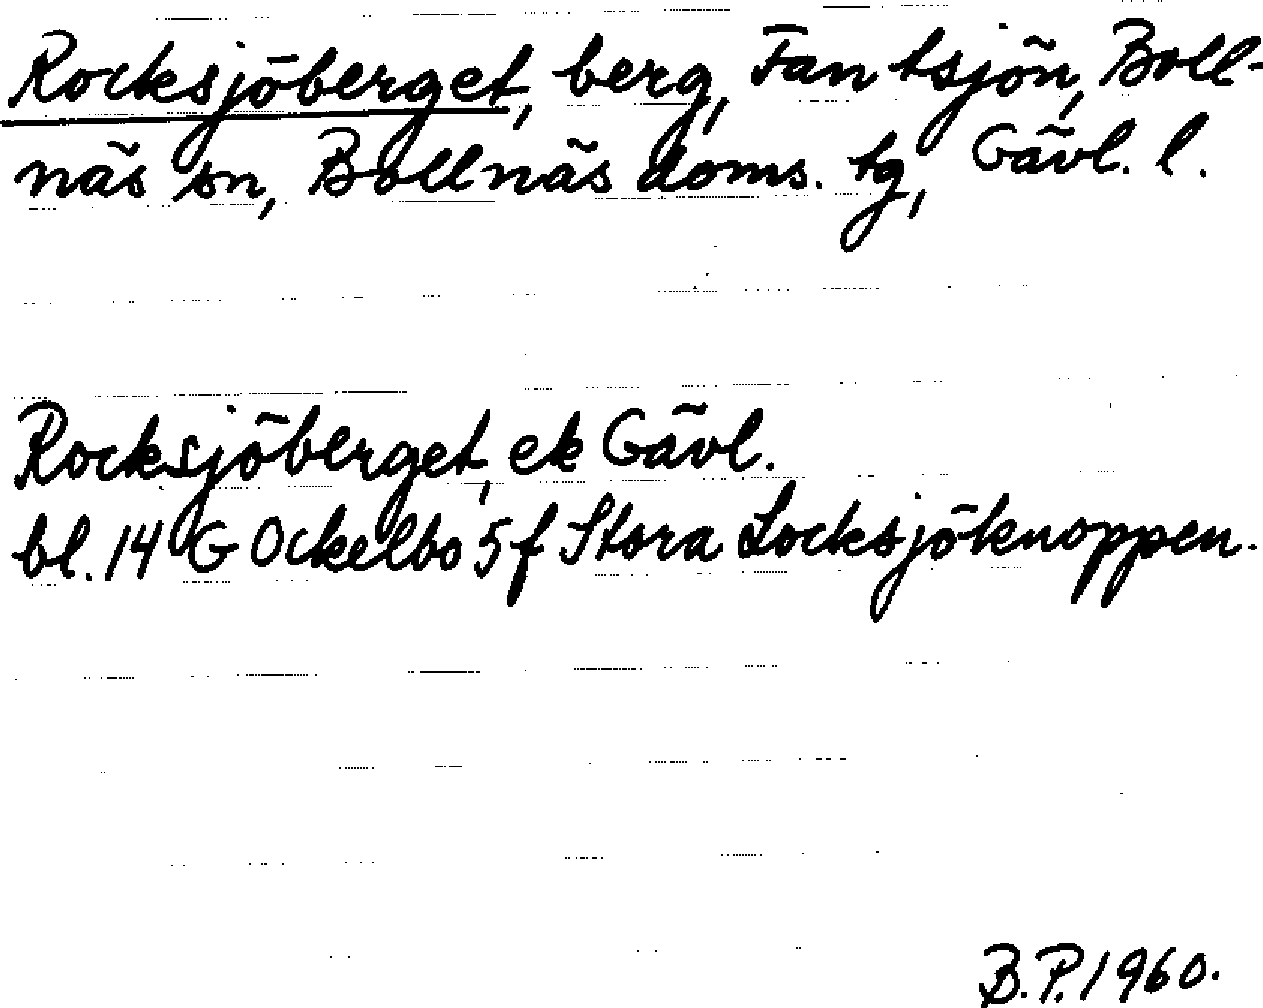 Rocksjöberget, berg, Fantsjön, Boll-
näs sn, Bollnäs doms. tg, Gävl. l.
Rocksjöberget, ek Gävl.
bl. 14 G Ockelbo 5 f Stora Locksjöknoppen.
B.P. 1960.